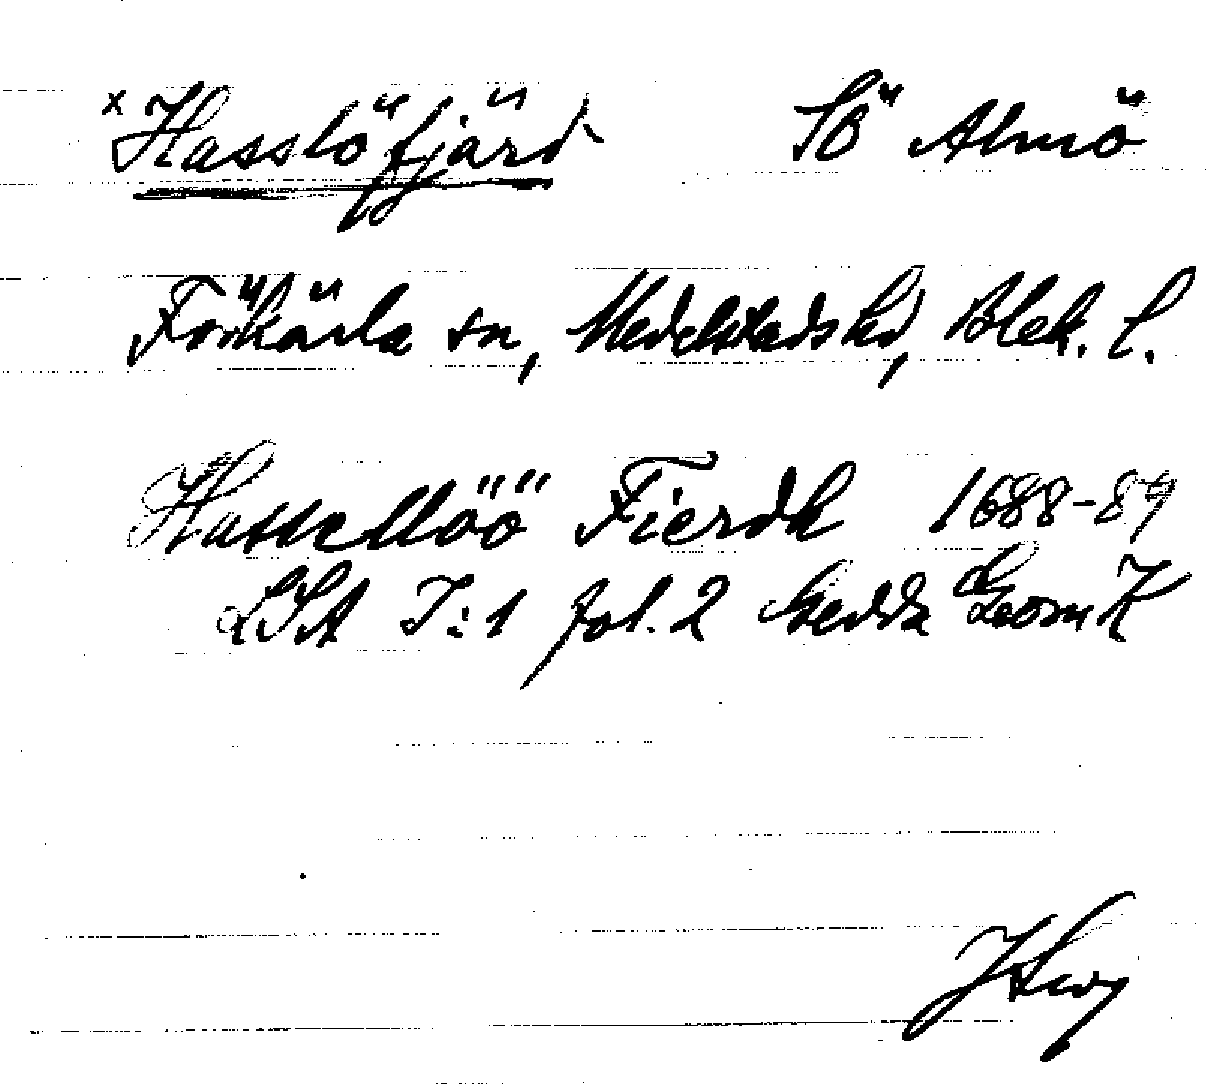 x Hasslöfjärd SÖ Almö
Förkärla sn, Medelstads hd, Blek. l.
Hassellöö Fierdh 1688-89
LSA I:1 fol. 2 Gedda Geom K